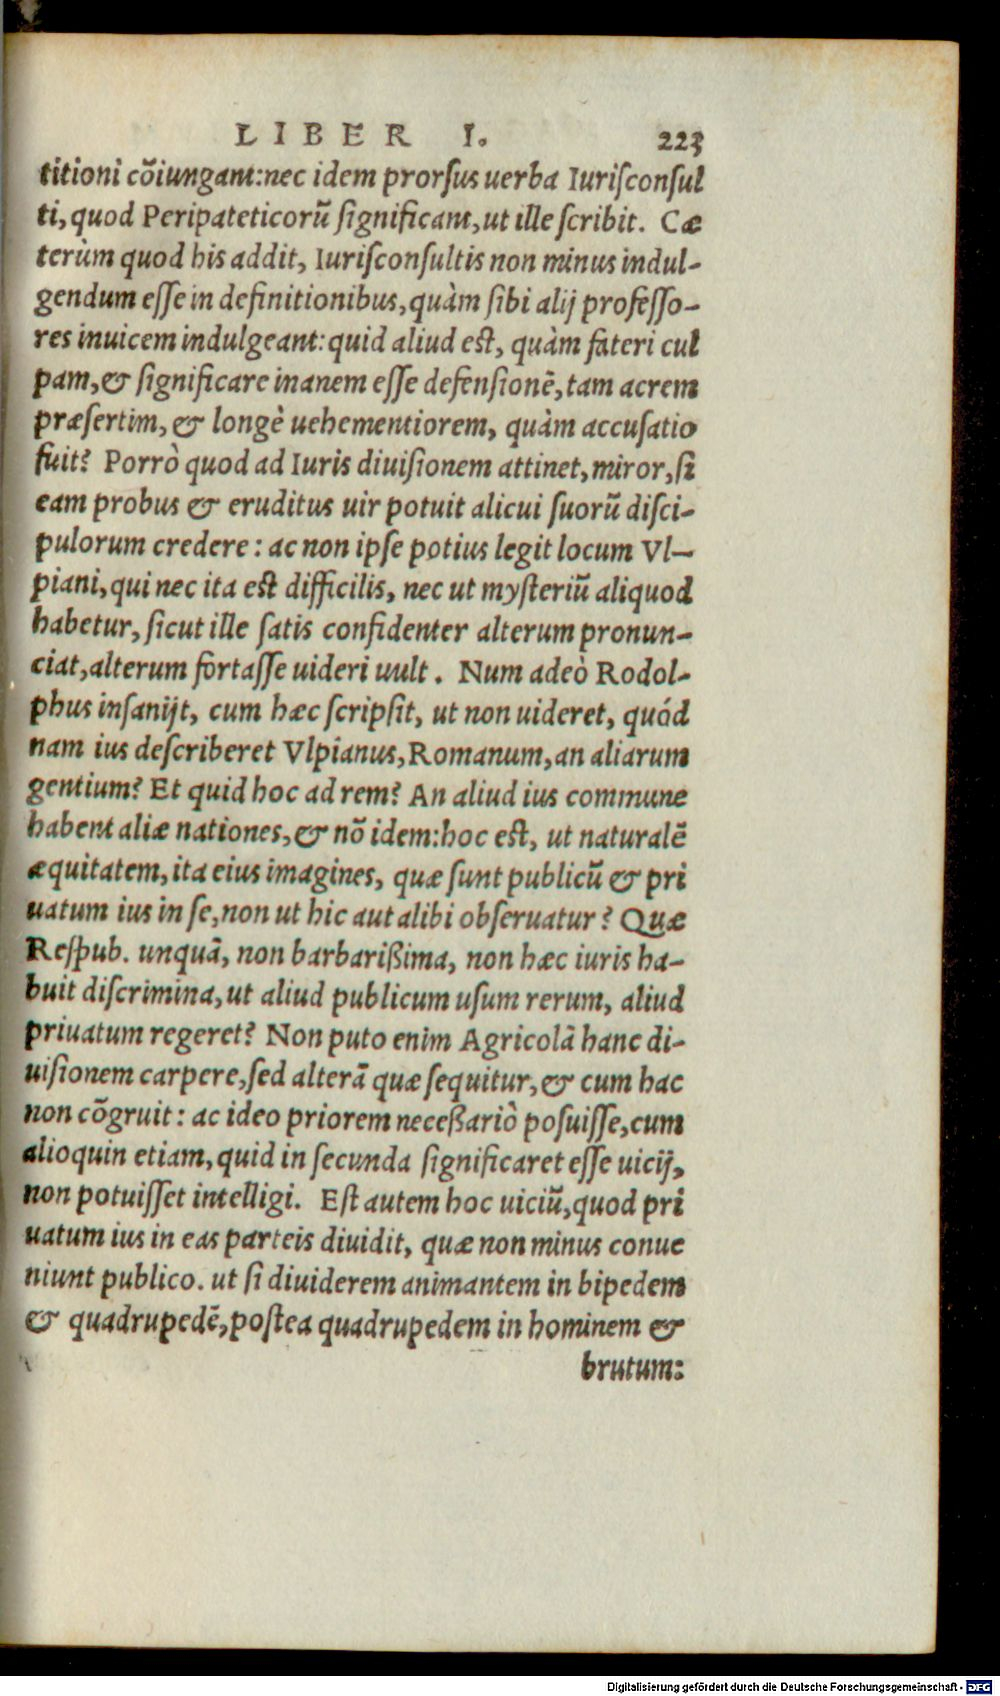 LIBER I. 223
titioni cõiungant:nec idem prorſus uerba Iuriſconſul
ti, quod Peripateticorũ ſignificant, ut ille ſcribit. Cæ
terùm quod his addit, Iuriſconſultis non minus indul-
gendum eſſe in definitionibus, quàm ſibi alij profeſſo-
res inuicem indulgeant: quid aliud eſt, quàm fateri cul
pam, & ſignificare inanem eſſe defenſionẽ, tam acrem
præſertim, & longè uehementiorem, quàm accuſatio
fuit? Porrò quod ad Iuris diuiſionem attinet, miror, ſi
eam probus & eruditus uir potuit alicui ſuorũ diſci-
pulorum credere: ac non ipſe potius legit locum Vl-
piani, qui nec ita eſt difficilis, nec ut myſteriũ aliquod
habetur, ſicut ille ſatis confidenter alterum pronun-
ciat, alterum fortaſſe uideri uult. Num adeò Rodol-
phus inſanijt, cum hæc ſcripſit, ut non uideret, quód
nam ius deſcriberet Vlpianus, Romanum, an aliarum
gentium? Et quid hoc ad rem? An aliud ius commune
habent aliæ nationes, & nõ idem: hoc eſt, ut naturalẽ
æquitatem, ita eius imagines, quæ ſunt publicũ & pri
uatum ius in ſe, non ut hic aut alibi obſeruatur? Quæ
Reſpub. unquã, non barbarißima, non hæc iuris ha-
buit diſcrimina, ut aliud publicum uſum rerum, aliud
priuatum regeret? Non puto enim Agricolã hanc di-
uiſionem carpere, ſed alterã quæ ſequitur, & cum hac
non cõgruit: ac ideo priorem neceßariò poſuiſſe, cum
alioquin etiam, quid in ſecunda ſignificaret eſſe uicij,
non potuiſſet intelligi. Eſt autem hoc uiciũ, quod pri
uatum ius in eas parteis diuidit, quæ non minus conue
niunt publico. ut ſi diuiderem animantem in bipedem
& quadrupedẽ, poſtea quadrupedem in hominem &
brutum:
Digitalisierung gefördert durch die Deutsche Forschungsgemeinschaft - DFG